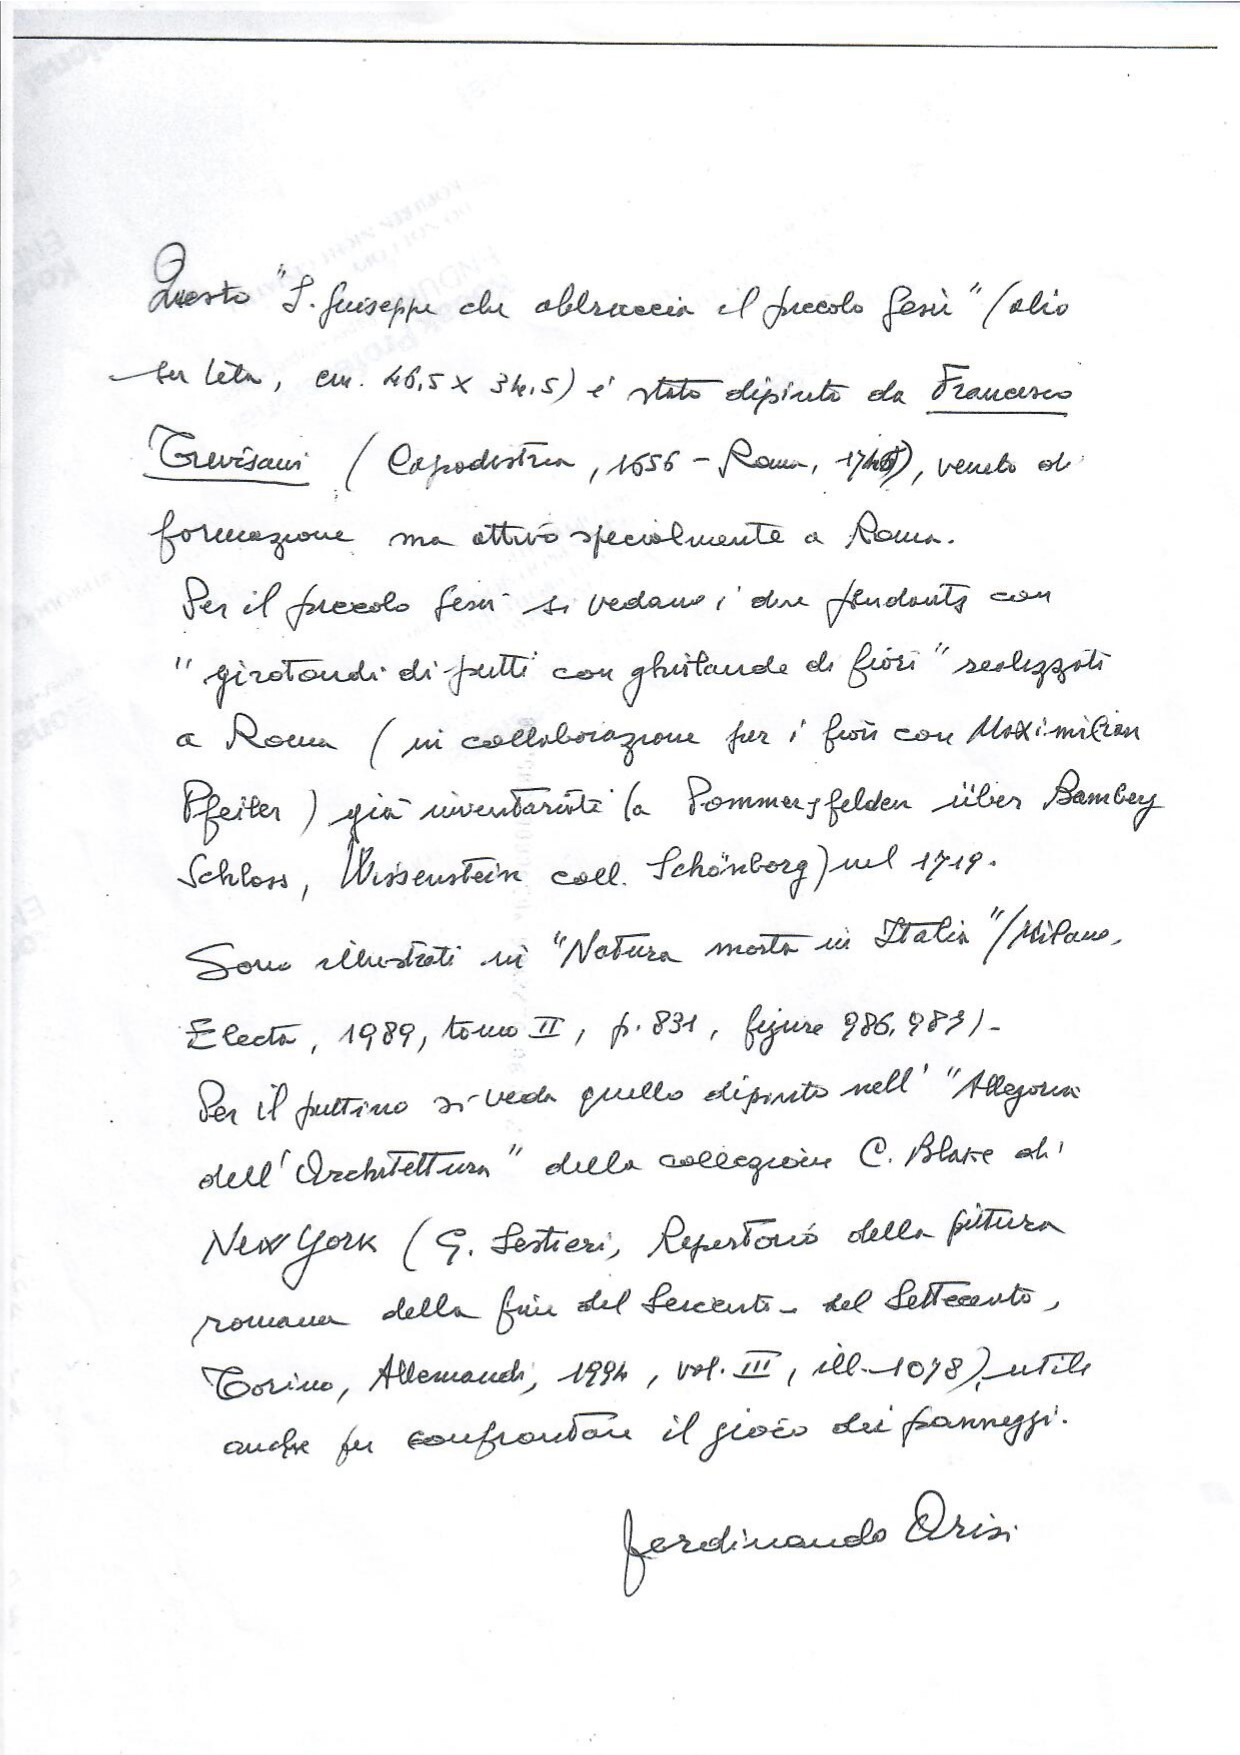 Questo "S. Giuseppe che abbraccia il piccolo Gesù" (olio
su tela, cm. 46,5 x 34,5) è stato dipinto da Francesco
Trevisani (Capodistria, 1656 - Roma, 1746), veneto di
formazione ma attivo specialmente a Roma.
Per il piccolo Gesù si vedano i due pendants con
"girotondi di putti con ghirlande di fiori" realizzati
a Roma (in collaborazione per i fiori con Maximilian
Pfeiler) già inventariati (a Pommersfelden über Bamberg
Schloss, Wissenstein coll. Schönborg) nel 1719.
Sono illustrati in "Natura morta in Italia" (Milano,
Electa, 1989, tomo II, p. 831, figure 986, 987).
Per il puttino si veda quello dipinto nell' "Allegoria
dell'Architettura" della collezione C. Blake di
New York (G. Sestieri, Repertorio della pittura
romana della fine del Seicento - del Settecento,
Torino, Allemandi, 1994, vol. III, ill. 1078), utile
anche per confrontare il gioco dei panneggi.
Ferdinando Arisi